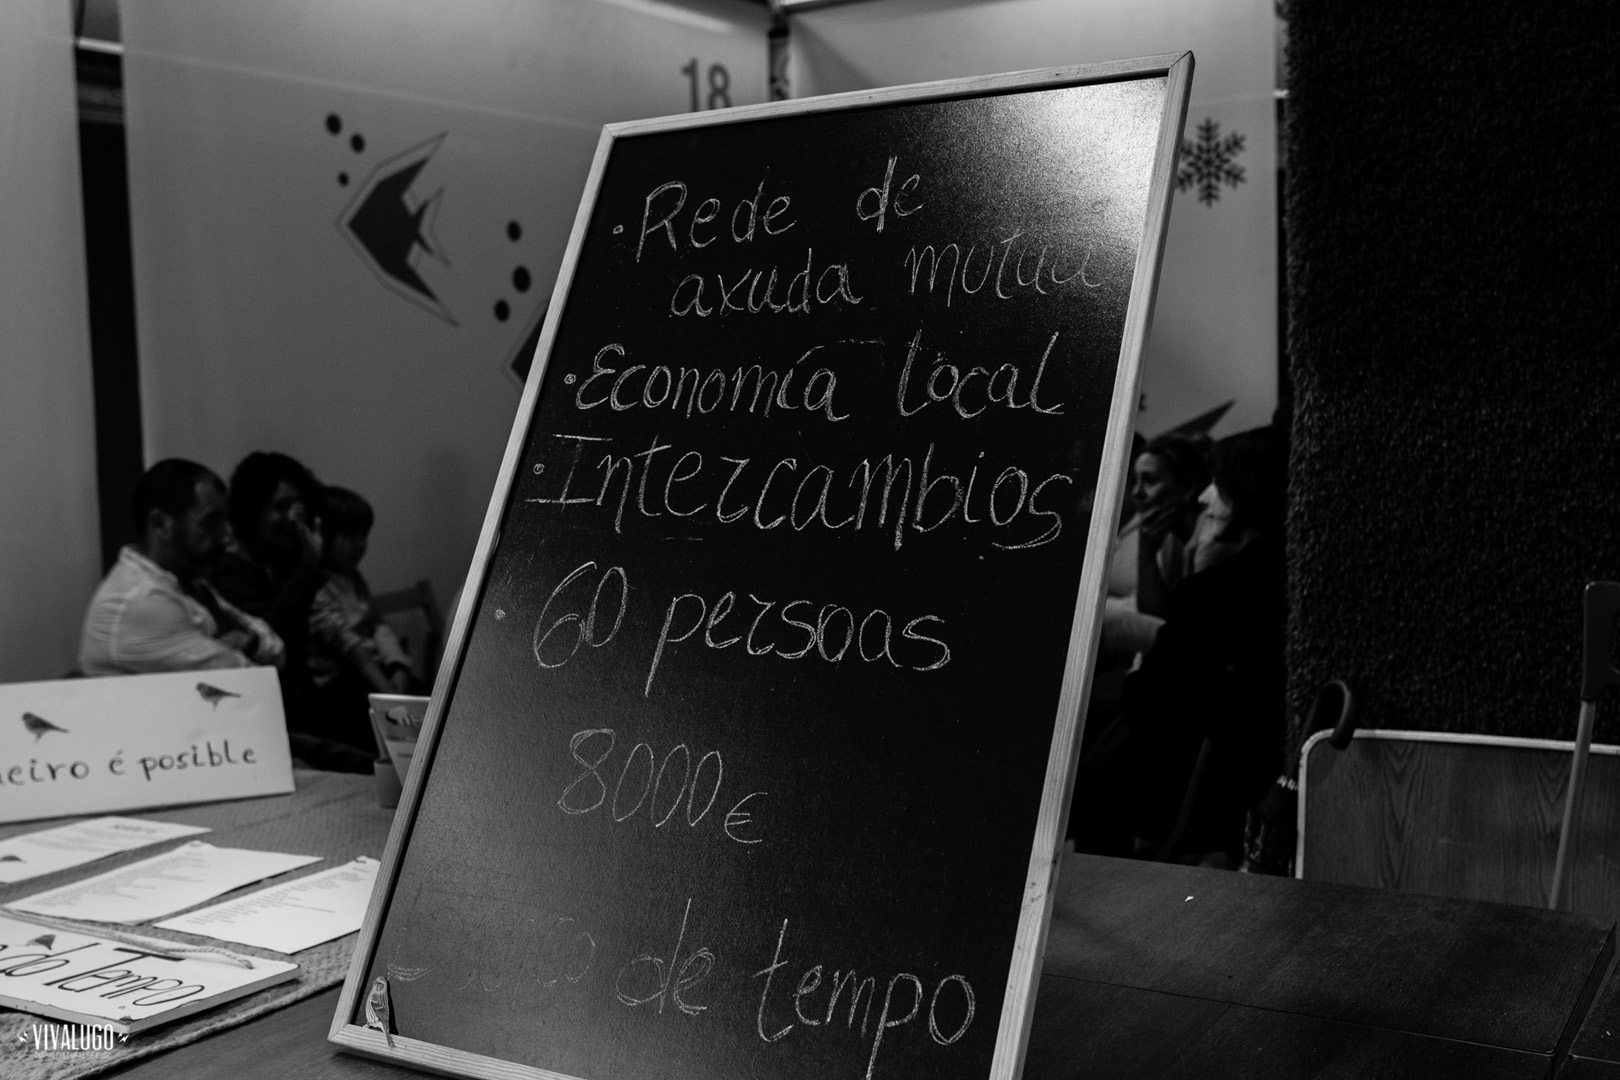 18
· Rede de
axuda mutua
· Economía local
· Intercambios
· 60 persoas
8000 €
de tempo
é posible
do Tempo
VIVALUGO